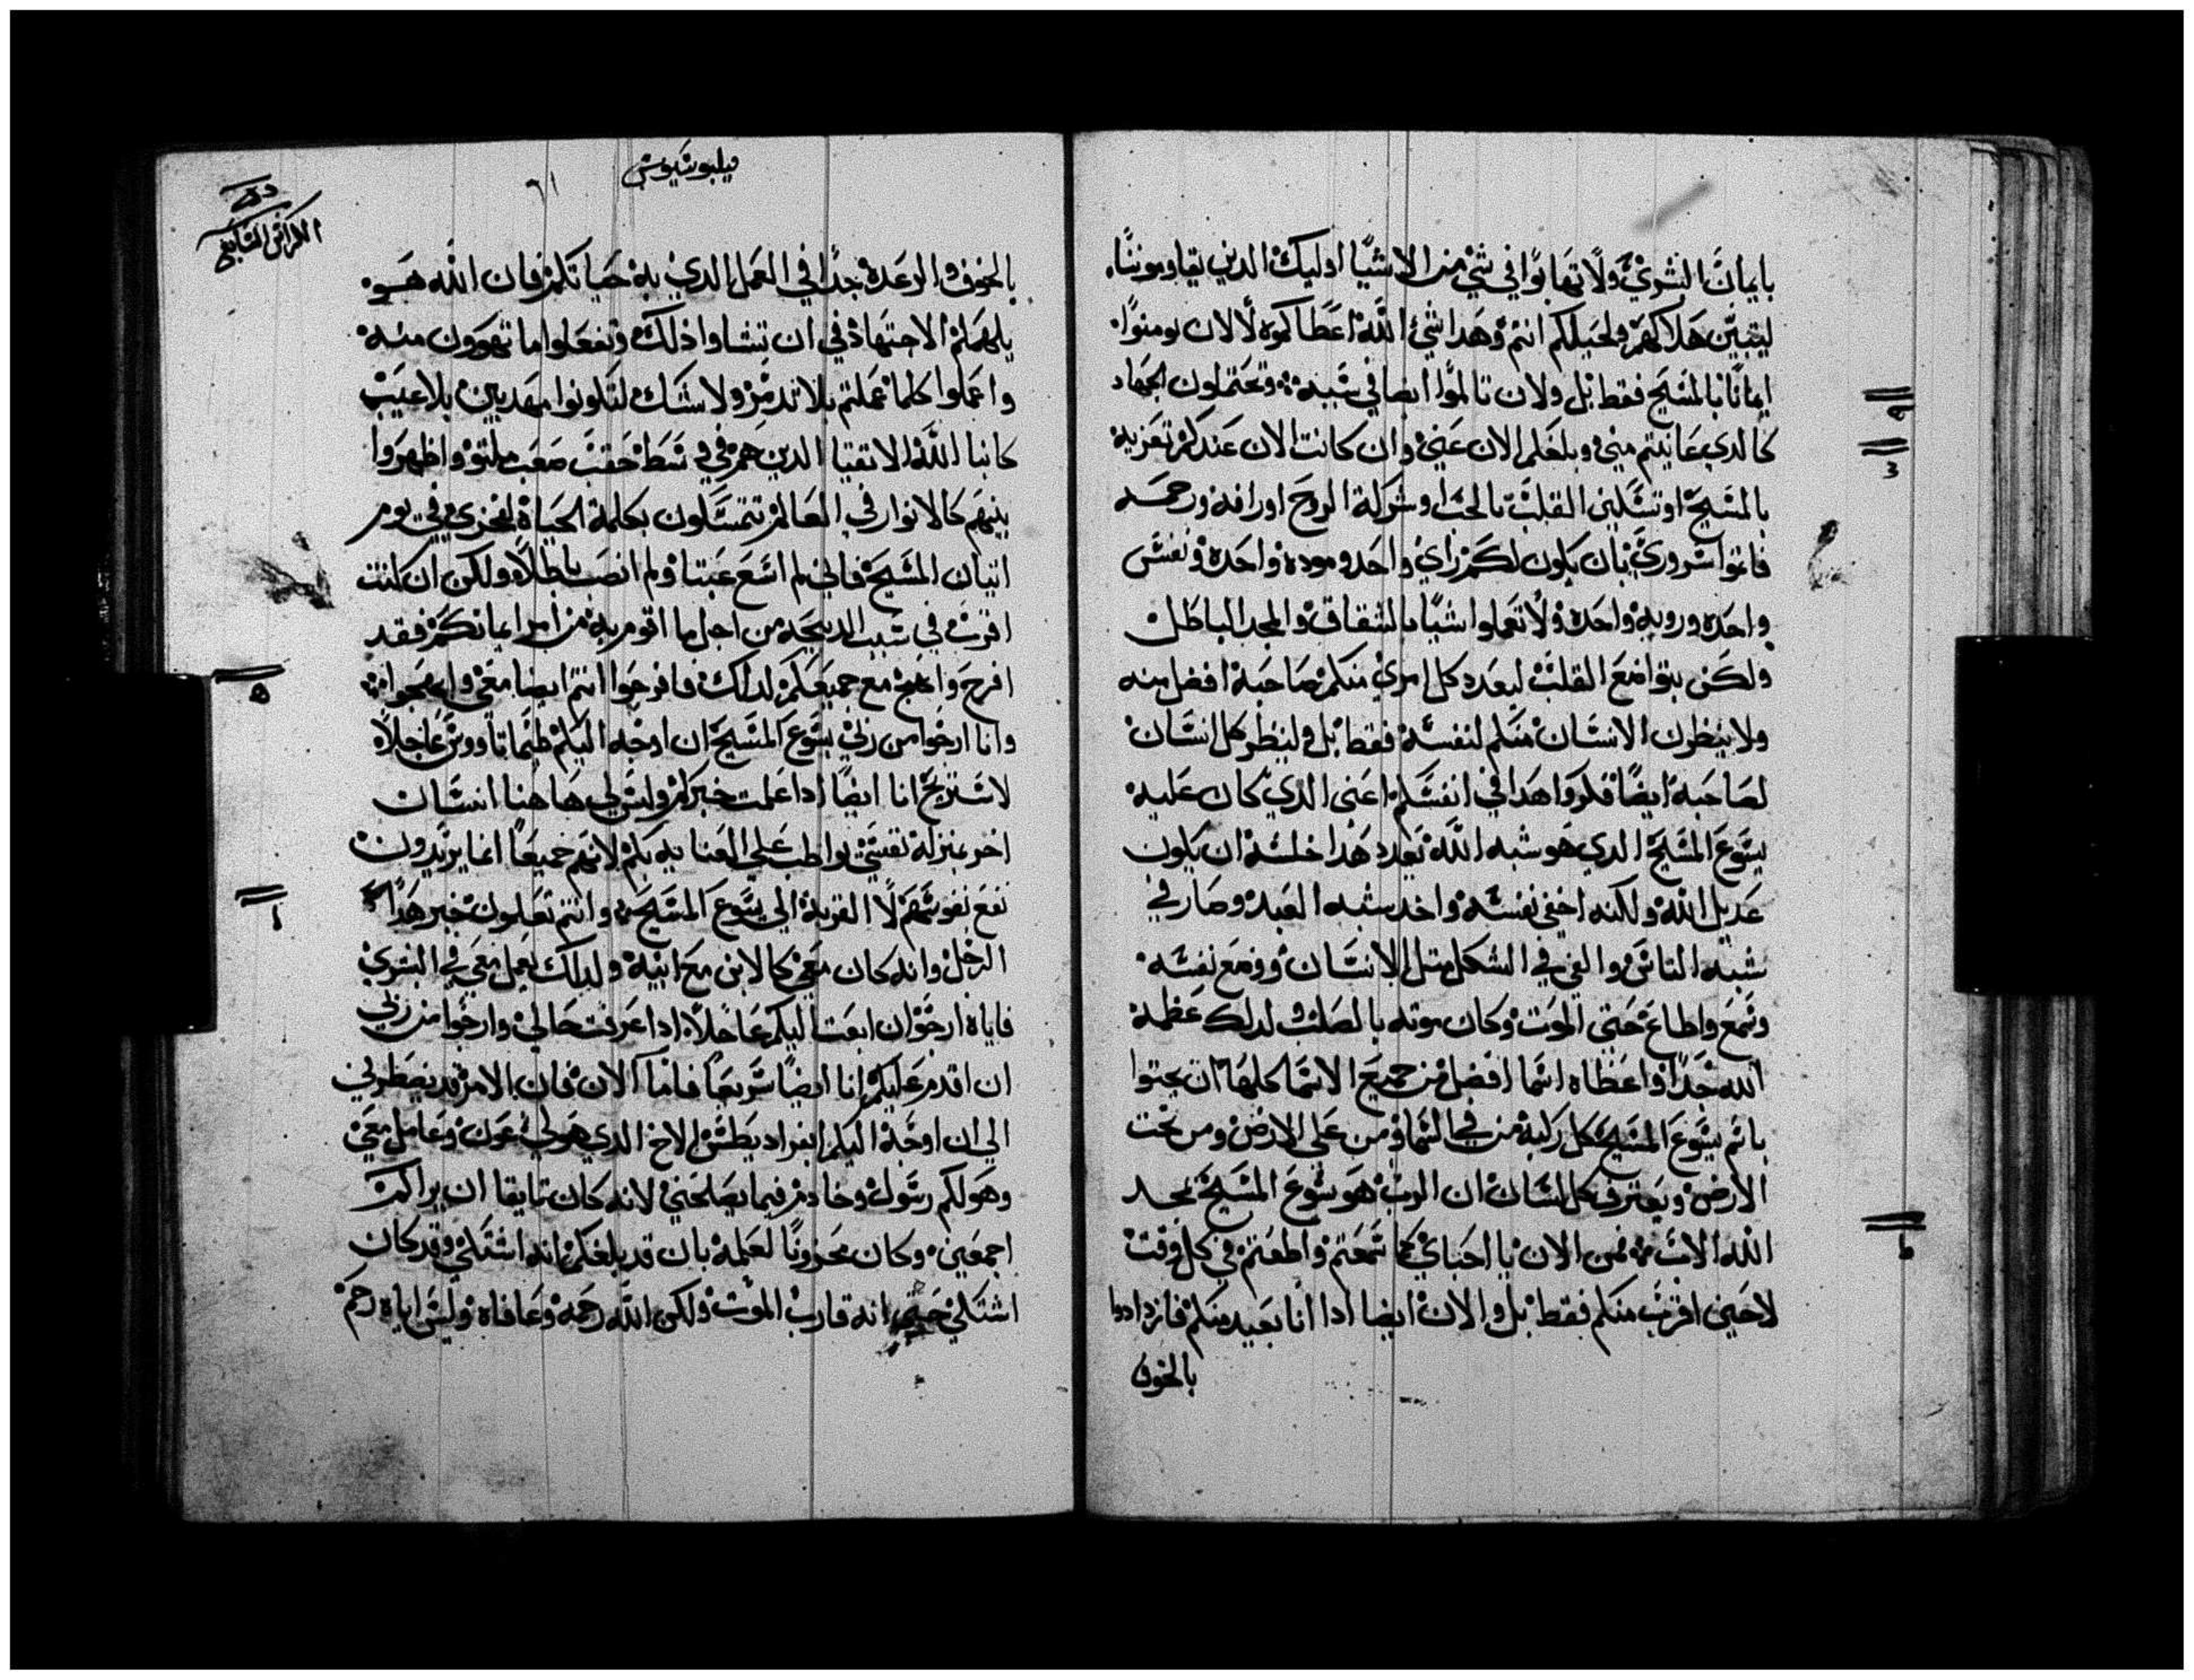 بايمان البشري ولا تهابوا في شي من الاشيا اوليك الدين يقاوموننا
ليتبين هلاكهم وحياتكم انتم وهدا شي الله اعطاكموه لا لان تومنوا
ايمانا بالمسيح فقط بل ولان تالموا ايضا في سببه وتحتملون الجهاد
كالدي عاينتم مني وبلغكم الان عني وان كانت الان عندكم تعزيه
بالمسيح او تسكين القلب بالحب او شركة الروح او رافه ورحمه
فاتموا سروري بان يكون لكم راي واحد وموده واحده ونفس
واحده ورويه واحده ولا تعملوا شيا بالشقاق والمجد الباطل
ولكن بتواضع القلب ليعدد كل امري منكم صاحبه افضل منه
ولا ينظرن الانسان منكم لنفسه فقط بل ولينظر كل انسان
لصاحبه ايضا فكروا هدا في انفسكم اعني الدي كان عليه
يسوع المسيح الدي هو شبه الله يعدد هدا خلسه ان يكون
عديل الله ولكنه اخفي نفسه واخد شبه العبد وصار في
شبه الناس والفي في الشكل متل الانسان ووضع نفسه
وسمع واطاع حتي الموت وكان موته بالصلب ولدلك عظمه
الله جدا واعطاه اسما افضل من جميع الاسما كلها ان يجتوا
باسم يسوع المسيح كل ركبه من في السما ومن على الارض ومن تحت
الارض ويعترف كل لسان ان الرب هو يسوع المسيح بمجد
الله الاب فمن الان يا احباي كما سمعتم واطعتم في كل وقت
لا حين اقترب منكم فقط بل والان ايضا ادا انا بعيد منكم فازدادوا
بالخوف
فيليبوسيوس
٦١
الكراس السابع
بالخوف والرعده جدا في العمل الدي به حياتكم فان الله هو
يلهمكم الاجتهاد في ان تشاوا ذلك وتفعلوا ما تهوون منه
واعملوا كلما عملتم بلا تدمر ولا شك لتكونوا مهديين بلا عيب
كابنا الله الاتقيا الدين هم في وسط حقب صعب ملتو واظهروا
بينهم كالانوار في العالم تتمسكون بكلمة الحياة لفخري في يوم
اتيان المسيح فاني لم اسع عبتا ولم انصب باطلا ولكن ان كنت
اقرب في سبب الدبيحه من اجل ما اقوم به من امر ايمانكم فقد
افرح وابتهج مع جميعكم لدلك فافرحوا انتم ايضا معي وابتهجوا
وانا ارجوا من ربي يسوع المسيح ان اوجه اليكم طيماتاووس عاجلا
لاستريح انا ايضا ادا علمت خبركم وليس لي هاهنا انسان
اخر بمنزلة نفسي يواظب علي العنايه بكم لانهم جميعا انما يريدون
نفع نفوسهم لا القربة الي يسوع المسيح وانتم تعلمون خبر هدا
الرجل وانه كان معي كالابن مع ابيه ولدلك يعمل معي في البشري
فاياه ارجوا ان ابعت اليكم عاجلا ادا عرفت حالي وارجوا من ربي
ان اقدم عليكم انا ايضا سريعا فاما الان فان الامر قد يضطرني
الي ان اوجه اليكم ابفراديطس الاخ الدي هو لي عون وعامل معي
وهو لكم رسول وخادم فيما يصلحني لانه كان تايقا ان يراكم
اجمعين وكان محزونا لعلمه بان قد بلغكم انه اشتكي وقد كان
اشتكي حتي انه قارب الموت ولكن الله رحمه وعافاه وليس اياه رحم